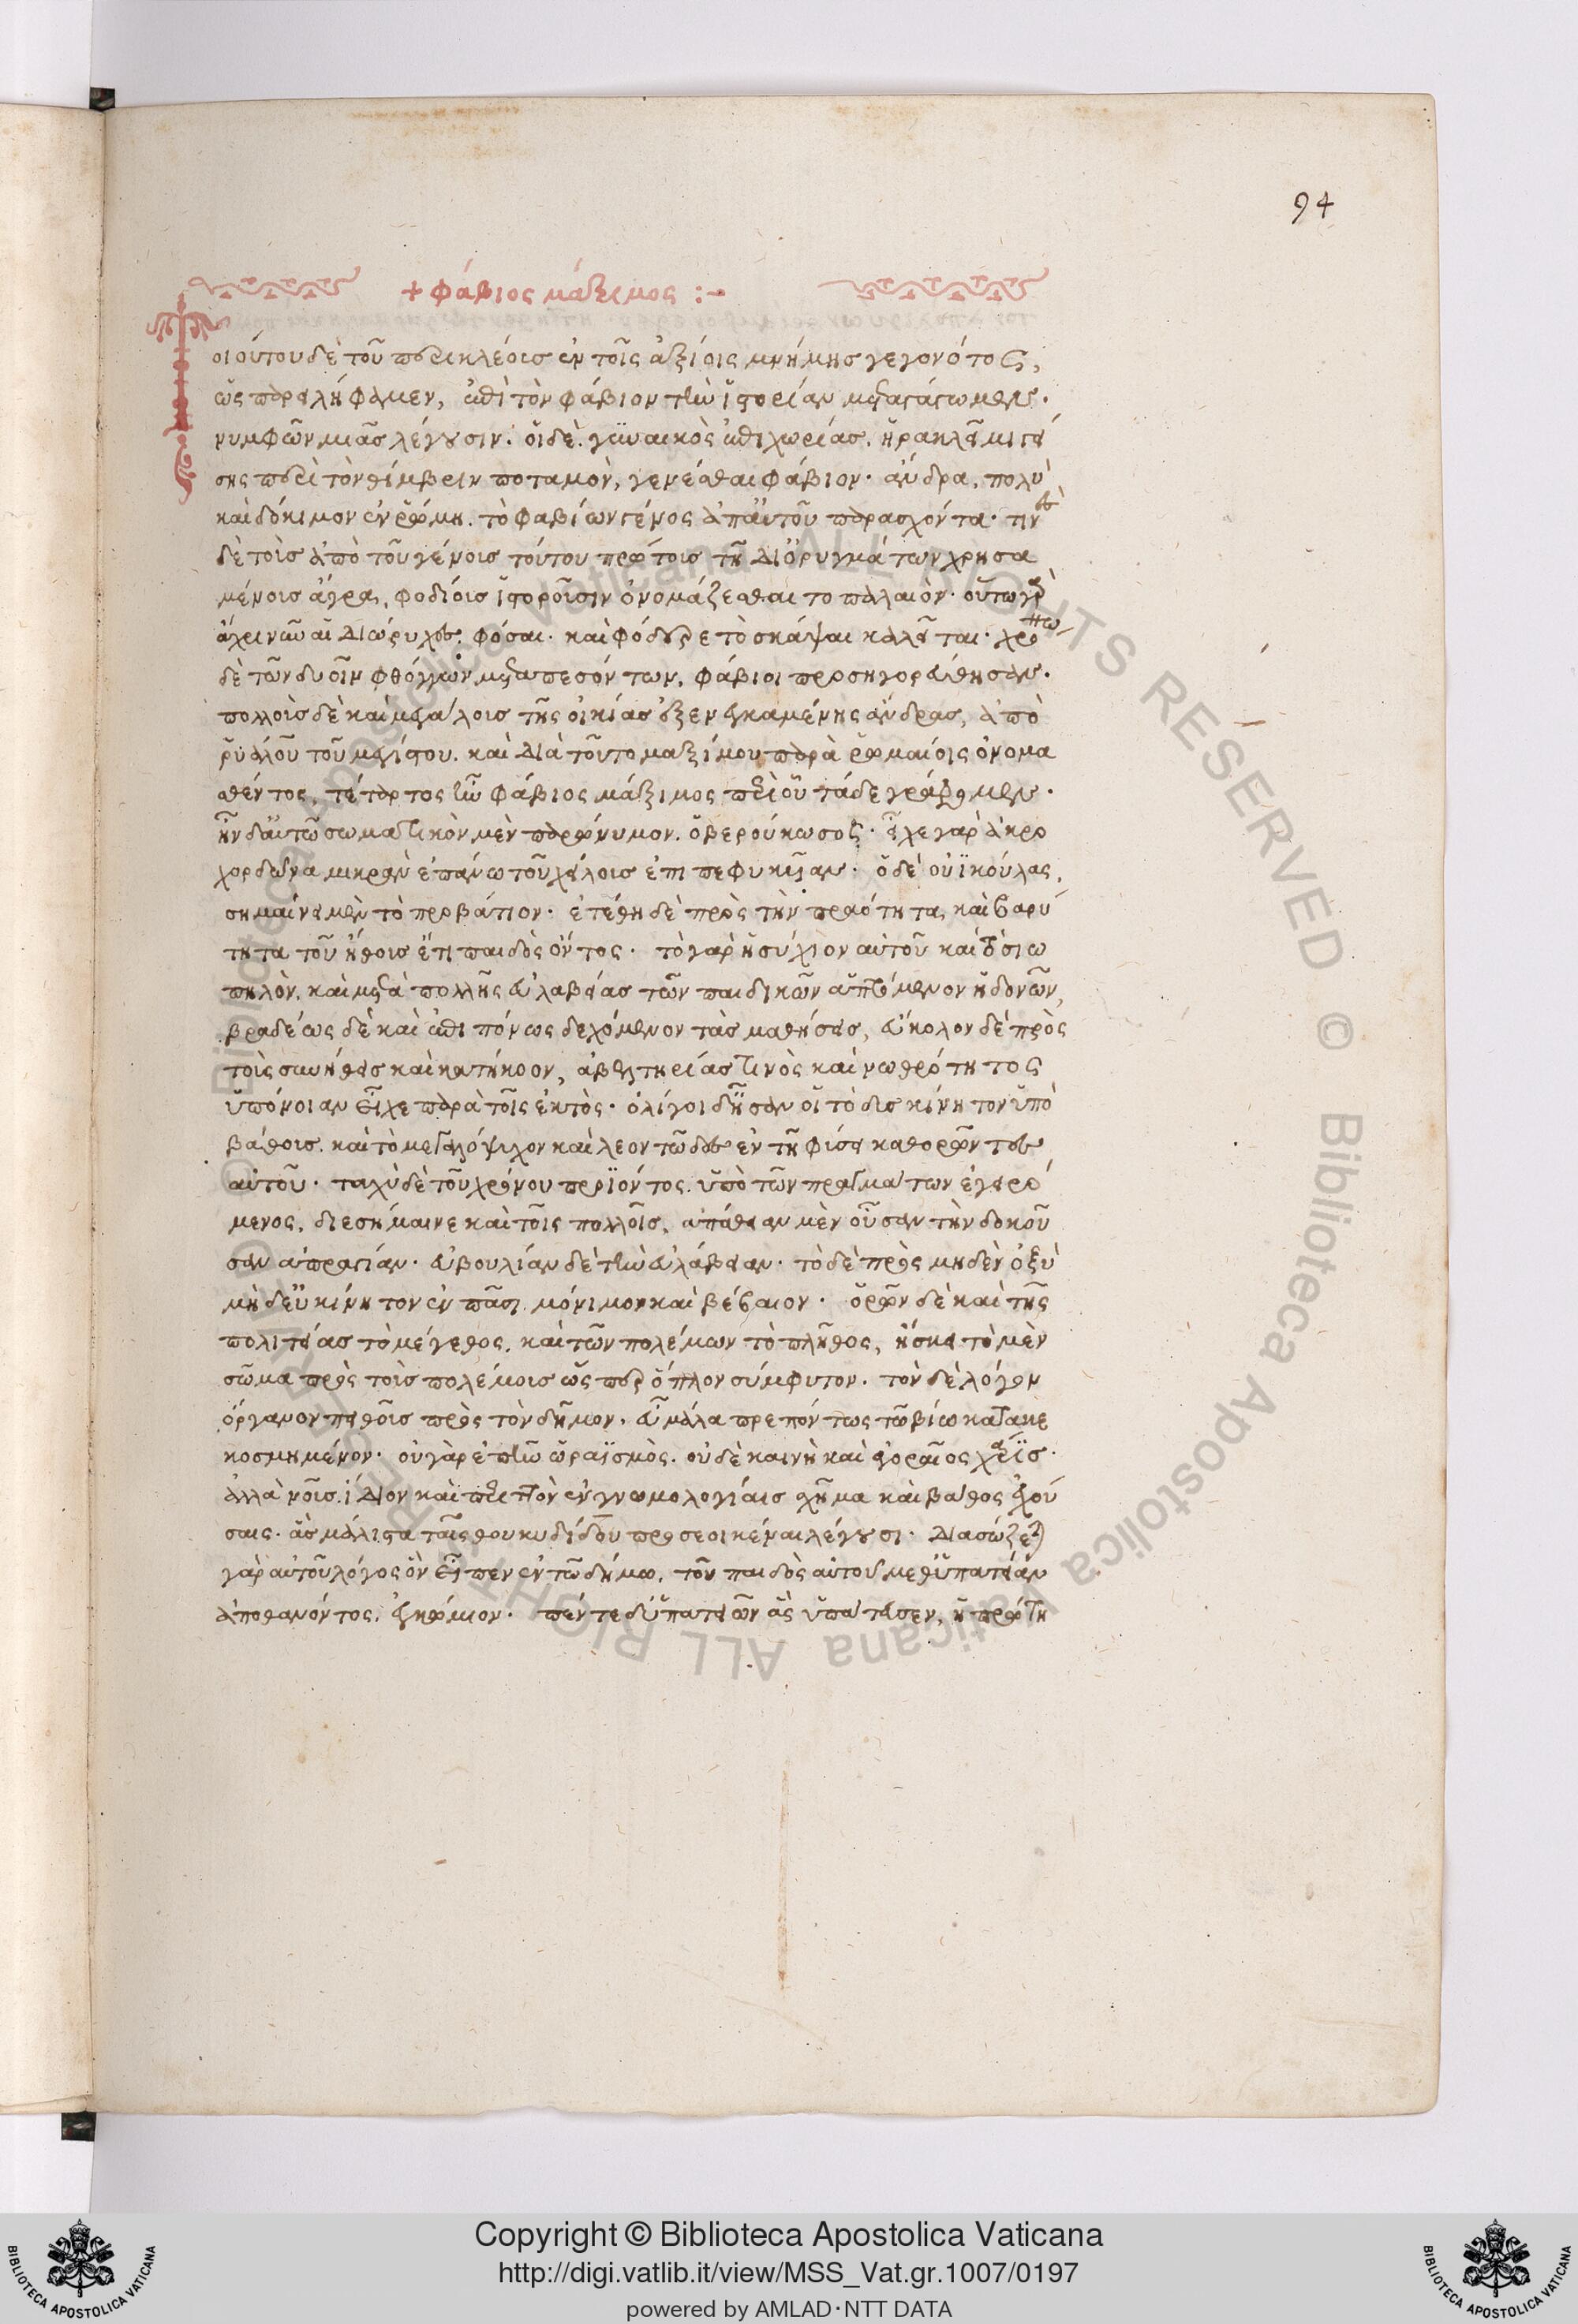 94
+ φάβιος μάξιμος :-
Τοιούτου δὲ τοῦ περικλέους ἐν τοῖς ἀξίοις μνήμης γεγονότος,
ὡς παρειλήφαμεν, ἐπὶ τὸν φάβιον τὴν ἱστορίαν μετατάττωμεν.
νυμφῶν μιᾶς λέγουσιν. οἱ δὲ. γυναικὸς ἐπιχωρίας. ἡρακλεῖ μιγεί
σης περὶ τὸν θίμβριν ποταμὸν, γενέσθαι φάβιον. ἄνδρα, πολὺ
καὶ δόκιμον ἐν ῥώμη. τὸ φαβίων γένος ἀπ' αὐτοῦ παρασχόντα. τινὲς
δὲ τοὺς ἀπὸ τοῦ γένους τούτου πρώτους τῆ δι' ὀρυγμάτων χρησα
μένους ἄγρα, φοδίους ἱστοροῦσιν ὀνομάζεσθαι το παλαιὸν. οὕτω γὰρ
ἄχρι νῦν αἱ διώρυχες. φόσσαι. καὶ φόδερε τὸ σκάψαι καλεῖται. χρόνω
δὲ τῶν δυοῖν φθόγγων μεταπεσόντων, φάβιοι προσηγορεύθησαν.
πολλοὺς δὲ καὶ μεγάλους τῆς οἰκίας ἐξενεγκαμένης ἄνδρας, ἀπὸ
ῥυλλοῦ τοῦ μεγίστου. καὶ διὰ τοῦτο μαξίμου παρὰ ῥωμαίοις ὀνομα
σθέντος, τέταρτος ἦν φάβιος μάξιμος περὶ οὗ τάδε γράφομεν.
ἦν δ' αὐτῶ σωματικὸν μὲν παρώνυμον. ὁ βερούκωσος. εἶχε γὰρ ἀκρο
χορδόνα μικρὰν ἐπάνω τοῦ χείλους ἐπιπεφυκυῖαν. ὁ δὲ οὐϊκούλας,
σημαίνει μὲν τὸ προβάτιον. ἐτέθη δὲ πρὸς τὴν πραότητα, καὶ βαρύ
τητα τοῦ ἤθους ἔτι παιδὸς ὄντος. τὸ γὰρ ἡσύχιον αὐτοῦ καὶ σιω
πηλὸν. καὶ μετὰ πολλῆς εὐλαβείας τῶν παιδικῶν ἁπτόμενον ἡδονῶν,
βραδέως δὲ καὶ ἐπιπόνως δεχόμενον τὰς μαθήσεις, εὔκολον δὲ πρὸς
τοὺς συνήθεις καὶ κατήκοον, ἀβελτηρίας τινὸς καὶ νωθρότητος
ὑπόνοιαν εἶχε παρὰ τοῖς ἐκτὸς. ὀλίγοι δ' ἦσαν οἱ τὸ δυσκίνητον ὑπὸ
βάθους. καὶ τὸ μεγαλόψυχον καὶ λεοντῶδες ἐν τῆ φύσει καθορῶντες
αὐτοῦ. ταχὺ δὲ τοῦ χρόνου προϊόντος. ὑπὸ τῶν πραγμάτων ἐγειρό
μενος, διεσήμαινε καὶ τοῖς πολλοῖς, ἀπάθειαν μὲν οὖσαν τὴν δοκοῦ
σαν ἀπραγίαν. εὐβουλίαν δὲ τὴν εὐλάβειαν. τὸ δὲ πρὸς μηδὲν ὀξὺ
μὴδ' εὐκίνητον ἐν πᾶσι μόνιμον καὶ βέβαιον. ὁρῶν δὲ καὶ τῆς
πολιτείας τὸ μέγεθος, καὶ τῶν πολέμων τὸ πλῆθος, ἤσκει τὸ μὲν
σῶμα πρὸς τοὺς πολέμους ὥσπερ ὅπλον σύμφυτον. τὸν δὲ λόγον
ὄργανον πειθοῦς πρὸς τὸν δῆμον, εὖ μάλα πρεπόντως τῶ βίω κατακε
κοσμημένον. οὐ γὰρ ἐπῆν ὡραϊσμὸς. οὐδὲ καινὴ καὶ ἀγοραῖος χάρις.
ἀλλὰ νοῦς. ἴδιον καὶ περιττὸν ἐν γνωμολογίαις σχῆμα καὶ βάθος ἔχού
σαις. ἃς μάλιστα ταῖς θουκυδίδου προσεοικέναι λέγουσι. διασώζεται
γὰρ αὐτοῦ λόγος ὃν εἶπεν ἐν τῶ δήμω, τοῦ παιδὸς αὐτοῦ μεθ' ὑπατείαν
ἀποθανόντος, ἐγκώμιον. πέντε δ' ὑπατειῶν ἃς ὑπάτευσεν, ἡ πρώτη
Copyright © Biblioteca Apostolica Vaticana
http://digi.vatlib.it/view/MSS_Vat.gr.1007/0197
powered by AMLAD·NTT DATA
BIBLIOTECA APOSTOLICA VATICANA
BIBLIOTECA APOSTOLICA VATICANA